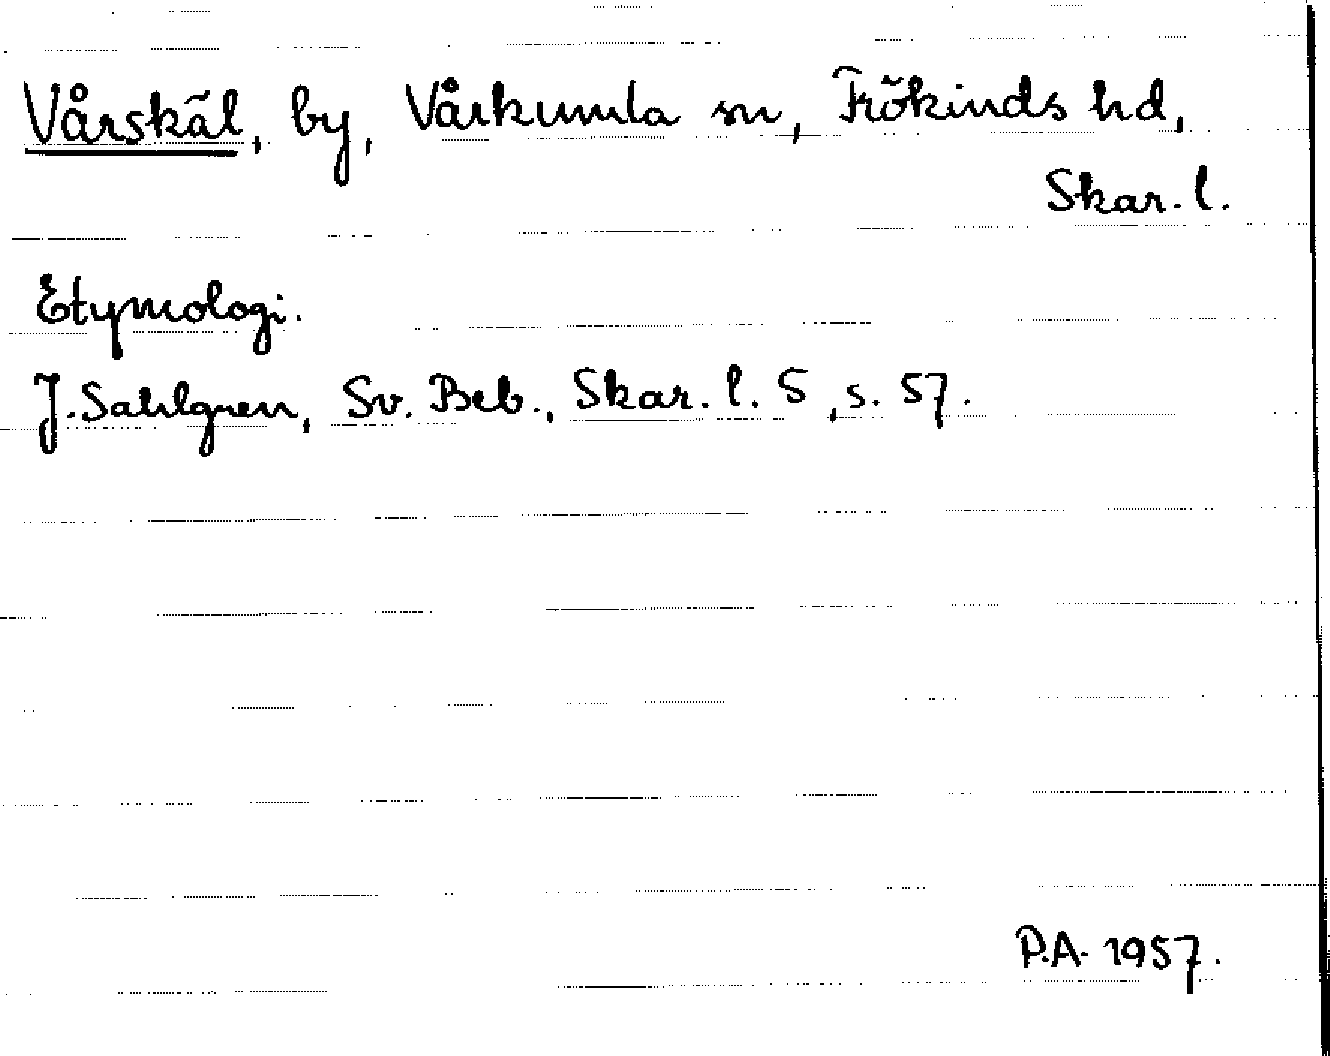 Vårskäl, by, Vårkumla sn, Frökinds hd,
Skar. l.
Etymologi.
J. Sahlgren, Sv. Beb., Skar. l. 5, s. 57.
P.A. 1957.